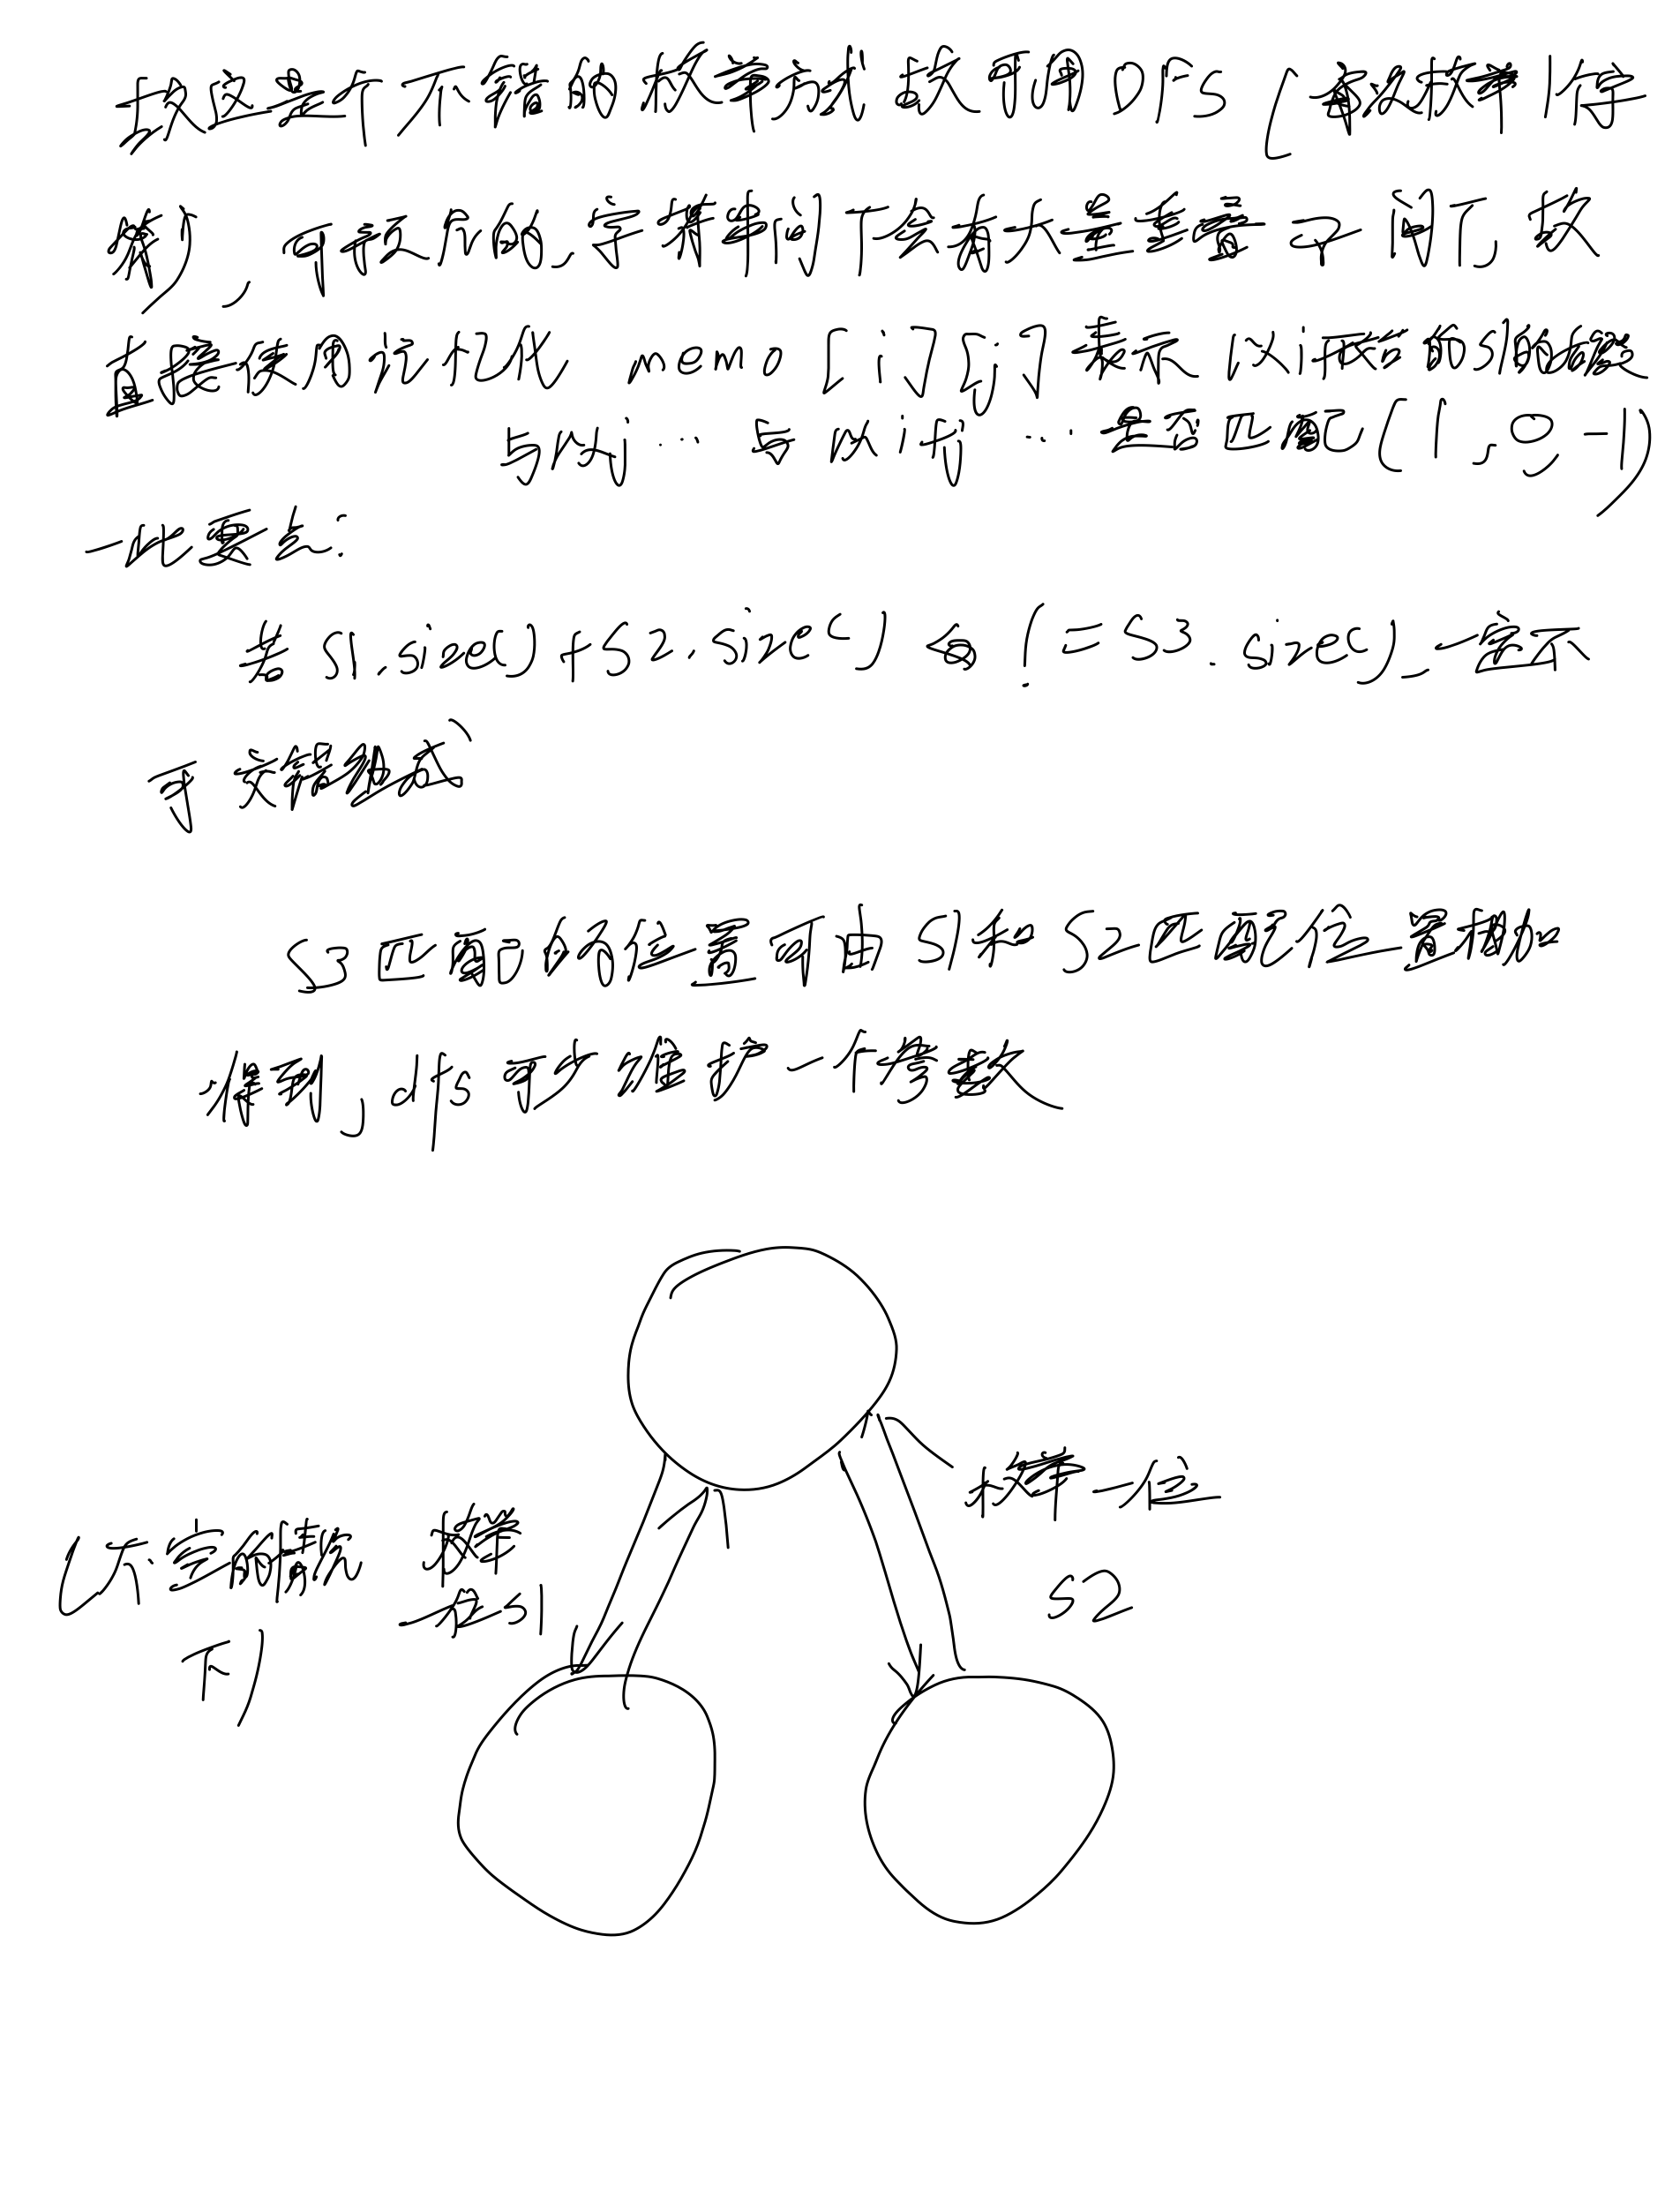 找这是个不错的枚举方式 故可用DFS (每次枚举1字
符), 可想而知,字符串间下会有大量重叠子问T, 故
直接使用记忆化 memo [i][j] 表示 以i开始的s1的
与以j……与以i+j……是否匹配(1, 0, -1)
一些要点:
若 s1.size()+s2.size() != s3.size(), 一定不
可 交错组成
s3匹配的位置可由s1和s2匹配位置相加
得到, dfs可少维护一个参数
枚举一位
s2
(不空的情况 枚举
一位s1
下)